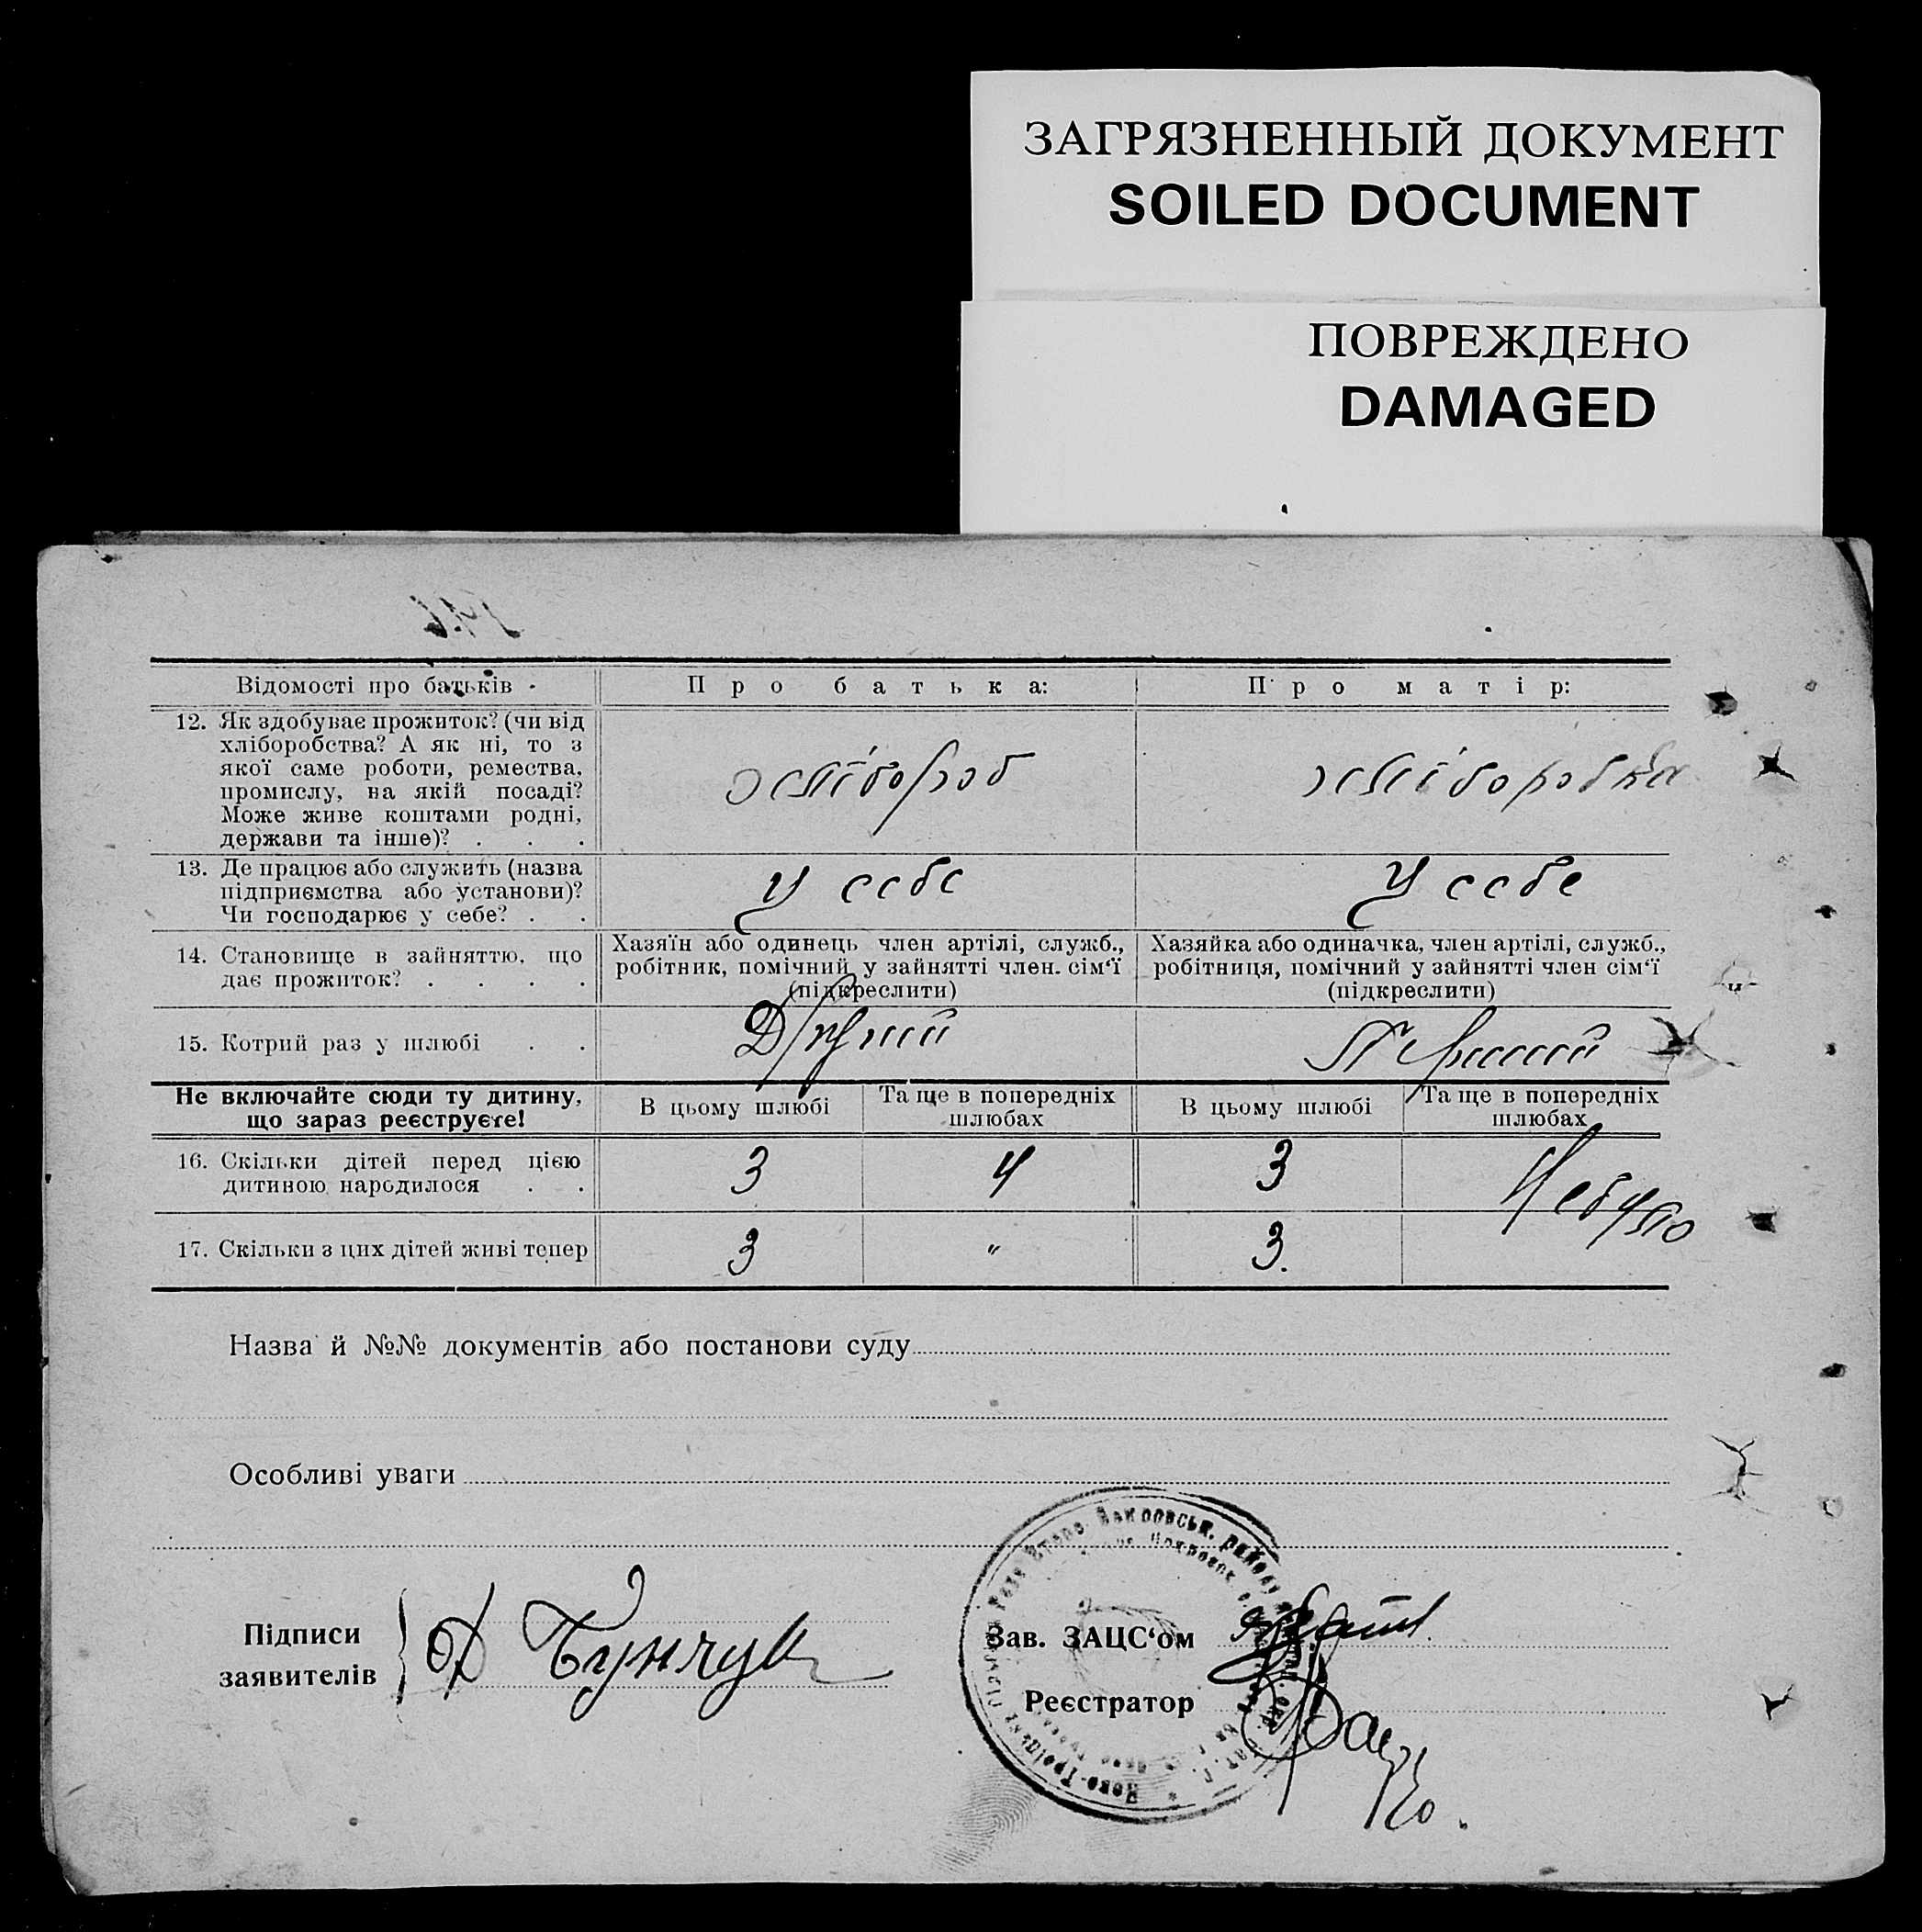 ЗАГРЯЗНЕННЫЙ ДОКУМЕНТ
SOILED DOCUMENT
ПОВРЕЖДЕНО
DAMAGED
Відомості про батьків
Про батька:
Про матір:
12. Як здобуває прожиток? (чи від
хліборобства? А як ні, то з
якої саме роботи, ремества,
промислу, на якій посаді?
Може живе коштами родні,
держави та інше)? . . .
хлібороб
хліборобка
13. Де працює або служить (назва
підприємства або установи)?
Чи господарює у себе? . .
у себе
у себе
14. Становище в зайняттю, що
дає прожиток? . . . .
Хазяїн або одинець член артілі, служб.,
робітник, помічний у зайнятті член. сім‘ї
(підкреслити)
Хазяйка або одиначка, член артілі, служб.,
робітниця, помічний у зайнятті член сім‘ї
(підкреслити)
15. Котрий раз у шлюбі . .
Другий
Перший
Не включайте сюди ту дитину,
що зараз реєструєте!
В цьому шлюбі
Та ще в попередніх
шлюбах
В цьому шлюбі
Та ще в попередніх
шлюбах
16. Скільки дітей перед цією
дитиною народилося . .
3
4
3
Небуло
17. Скільки з цих дітей живі тепер
3
"
3.
Назва й №№ документів або постанови суду
Особливі уваги
Підписи
заявителів
Бунчук
Зав. ЗАЦС‘ом
Реєстратор